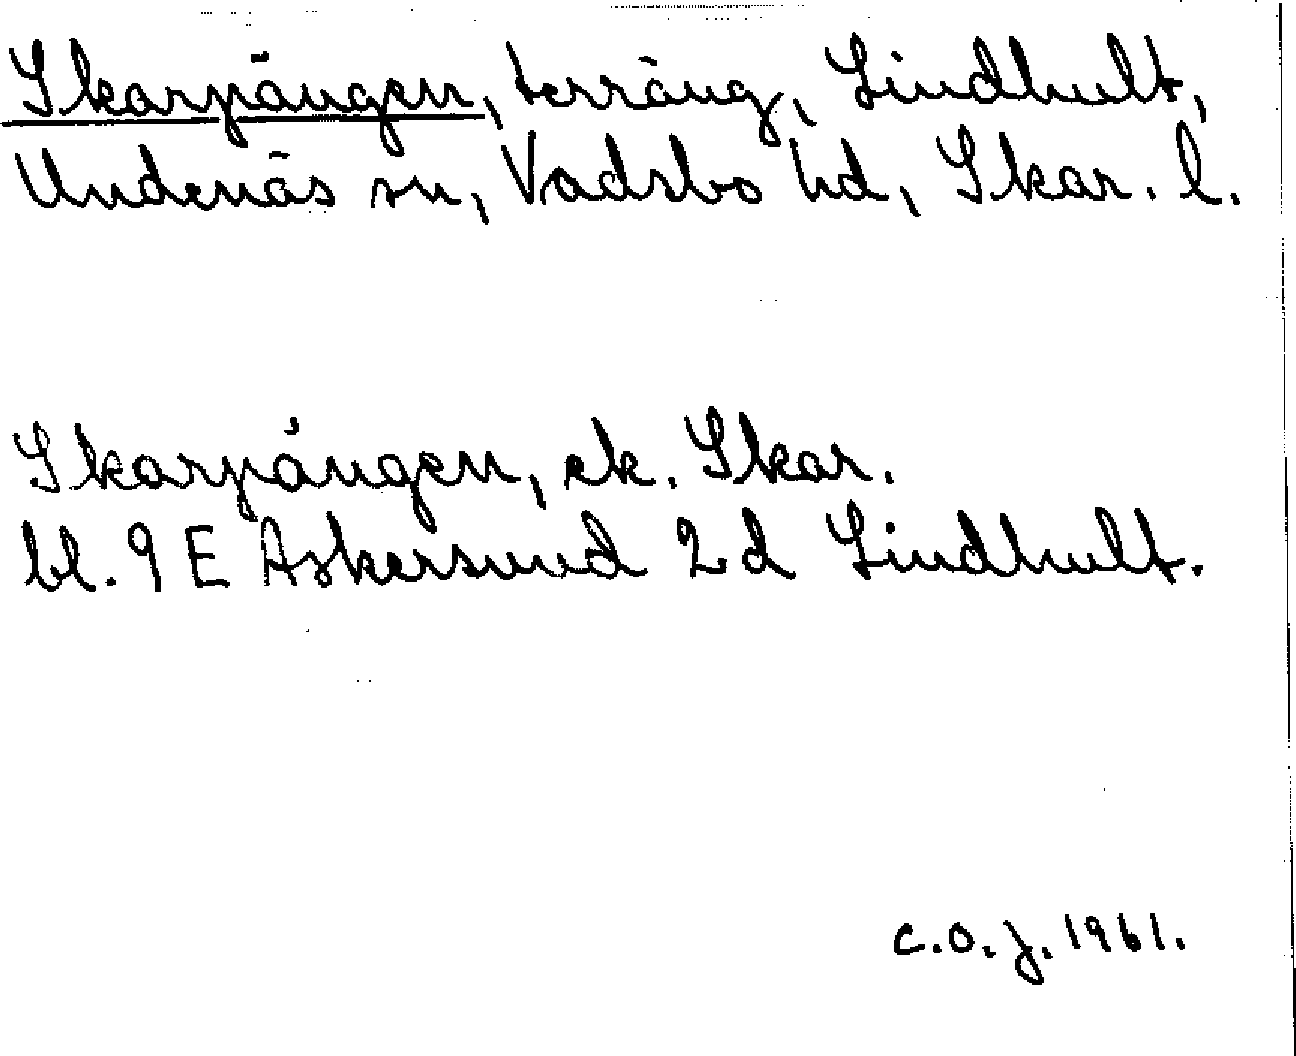 Skarpängen, terräng, Lindhult,
Undenäs sn, Vadsbo hd, Skar. l.
Skarpängen, ek. Skar.
bl. 9 E Askersund 2d Lindhult.
C.O.J. 1961.